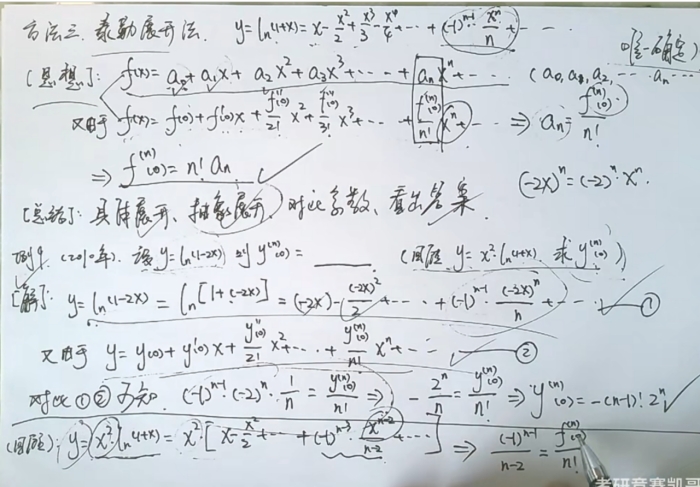 方法三 泰勒展开法. y=ln(1+x)=x-x²/2+x³/3-x⁴/4+⋯+(-1)ⁿ⁻¹ xⁿ/n+⋯
[思想]: f(x)=a₀+a₁x+a₂x²+a₃x³+⋯+aₙxⁿ⋯ (a₀,a₁,a₂,⋯aₙ⋯ 唯一确定)
又由于 f(x)=f(0)+f'(0)x+f''(0)/2! x²+f'''(0)/3! x³+⋯+f⁽ⁿ⁾(0)/n! xⁿ+⋯ ⇒ aₙ=f⁽ⁿ⁾(0)/n!
⇒ f⁽ⁿ⁾(0)=n! aₙ
(-2x)ⁿ=(-2)ⁿ·xⁿ.
[总结]: 具体展开、抽象展开、对比系数、看出答案
例4. (2010年). 设y=ln(1-2x) 则y⁽ⁿ⁾(0)=____ (回顾 y=x²ln(1+x). 求y⁽ⁿ⁾(0))
[解]: y=ln(1-2x)=ln[1+(-2x)]=(-2x)-(-2x)²/2+⋯+(-1)ⁿ⁻¹·(-2x)ⁿ/n+⋯ ①
又由于 y=y(0)+y'(0)x+y''(0)/2! x²+⋯+y⁽ⁿ⁾(0)/n! xⁿ+⋯ ②
对比①②可知. (-1)ⁿ⁻¹·(-2)ⁿ·1/n=y⁽ⁿ⁾(0)/n! ⇒ -2ⁿ/n=y⁽ⁿ⁾(0)/n! ⇒ y⁽ⁿ⁾(0)=-(n-1)! 2ⁿ
(回顾): y=x²ln(1+x)=x²[x-x²/2+⋯+(-1)ⁿ⁻³·xⁿ⁻²/(n-2)+⋯] ⇒ (-1)ⁿ⁻¹/(n-2)=f⁽ⁿ⁾(0)/n!
考研竞赛凯哥